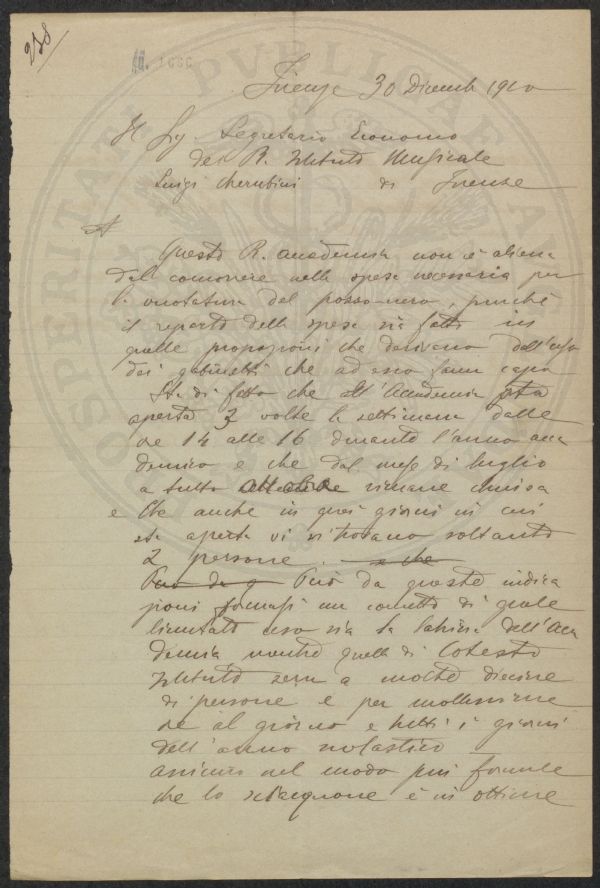 238
Firenze 30 Dicemb 1910
Il Sig. Segretario Economo
del R. Istituto Musicale
Luigi Cherubini di Firenze
Questa R. Accademia non è aliena
dal concorrere nella spesa necessaria per
la vuotatura del pozzo nero, purché
il reparto della spesa sia fatto in
quelle proporzioni che derivano dall'uso
dei gabinetti che ad esso fanno capo
Sta di fatto che all'Accademia sta
aperta 3 volte la settimana dalle
ore 14 alle 16 durante l'anno acca
demico e che dal mese di luglio
a tutto ottobre rimane chiusa
e che anche in quei giorni in cui
sta aperta vi si trovano soltanto
2 persone. e che
Può da q Può da queste indica
zioni formarsi un concetto di quale
limitato uso sia la latrina dell'Acca
demia mentre quella di Cotesto
Istituto serve a molte diecine
di persone e per moltissime
ore al giorno e tutti i giorni
dell'anno scolastico
assicuro nel modo più formale
che lo sciacquone è in ottime